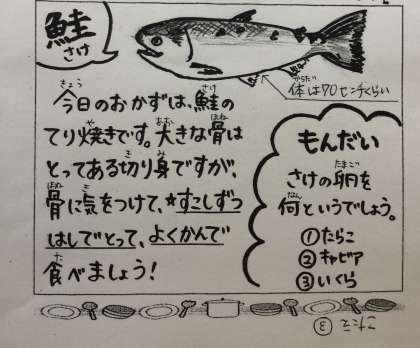 鮭
さけ
体は70センチくらい
今日のおかずは、鮭の
てり焼きです。大きな骨は
とってある切り身ですが、
骨に気をつけて、★すこしずつ
はしでとって、よくかんで
食べましょう!
もんだい
さけの卵を
何というでしょう。
①たらこ
②キャビア
③いくら
こたえ ③